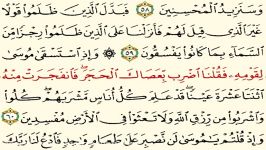 وَسَنَزِيدُ الْمُحْسِنِينَ ٥٨ فَبَدَّلَ الَّذِينَ ظَلَمُوا قَوْلًا
غَيْرَ الَّذِي قِيلَ لَهُمْ فَأَنزَلْنَا عَلَى الَّذِينَ ظَلَمُوا رِجْزًا مِّنَ
السَّمَاءِ بِمَا كَانُوا يَفْسُقُونَ ٥٩ وَإِذِ اسْتَسْقَىٰ مُوسَىٰ
لِقَوْمِهِ فَقُلْنَا اضْرِب بِّعَصَاكَ الْحَجَرَ فَانفَجَرَتْ مِنْهُ
اثْنَتَا عَشْرَةَ عَيْنًا قَدْ عَلِمَ كُلُّ أُنَاسٍ مَّشْرَبَهُمْ كُلُوا
وَاشْرَبُوا مِن رِّزْقِ اللَّهِ وَلَا تَعْثَوْا فِي الْأَرْضِ مُفْسِدِينَ ٦٠
وَإِذْ قُلْتُمْ يَا مُوسَىٰ لَن نَّصْبِرَ عَلَىٰ طَعَامٍ وَاحِدٍ فَادْعُ لَنَا رَبَّكَ